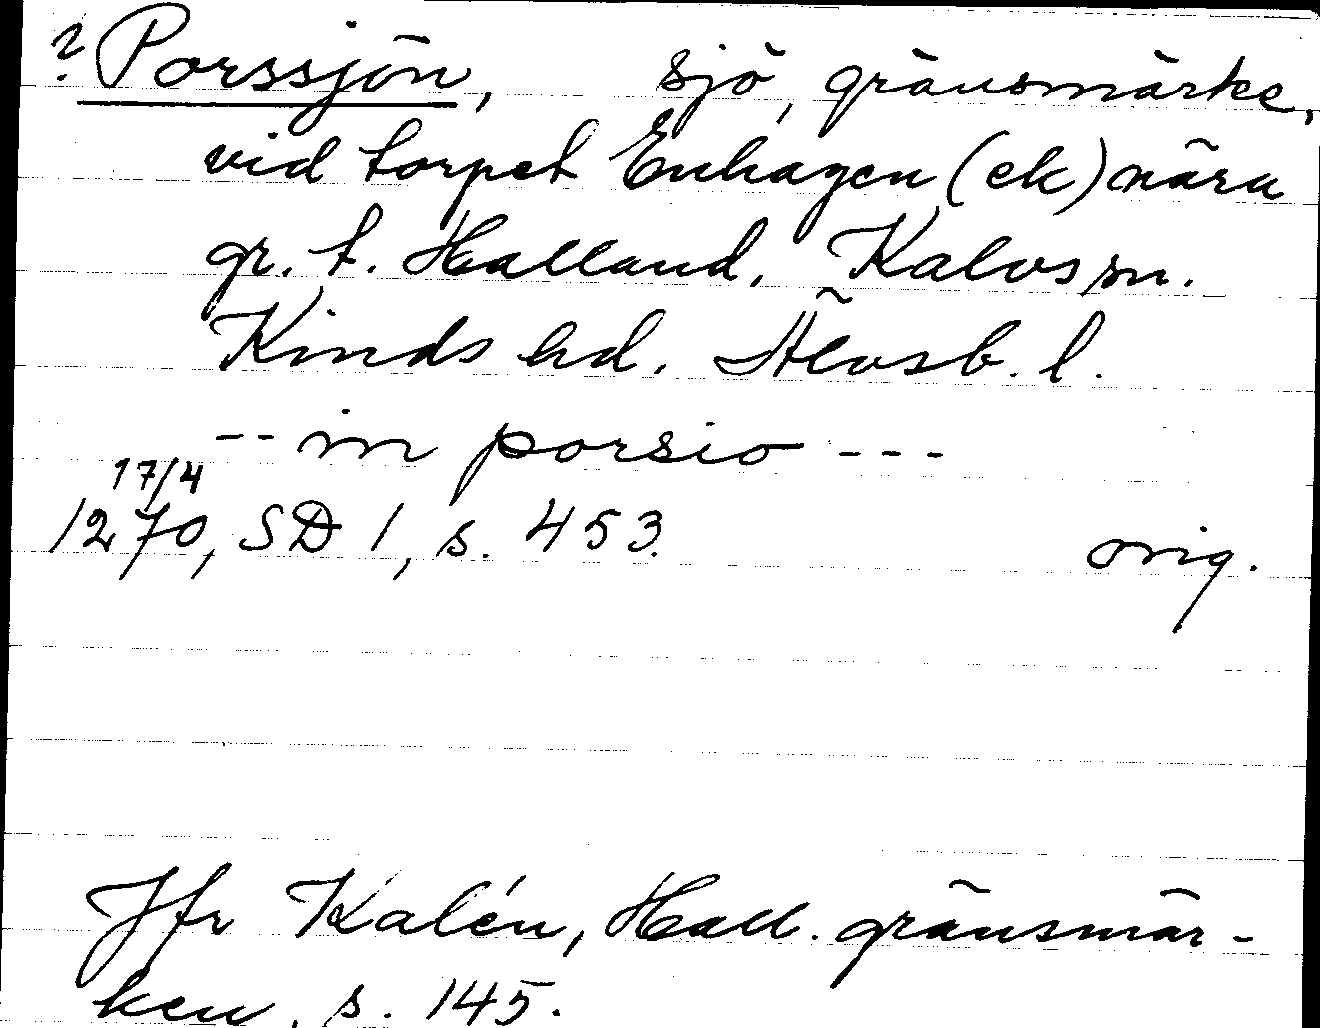 ? Porssjön, sjö, gränsmärke,
vid torpet Enhagen (ek) nära
gr. t. Halland, Kalvs sn.
Kinds hd. Älvsb. l.
-- in porsio ---
17/4
1270, SD 1, s. 453. orig.
Jfr Kalén, Hall. gränsmär-
ken, s. 145.